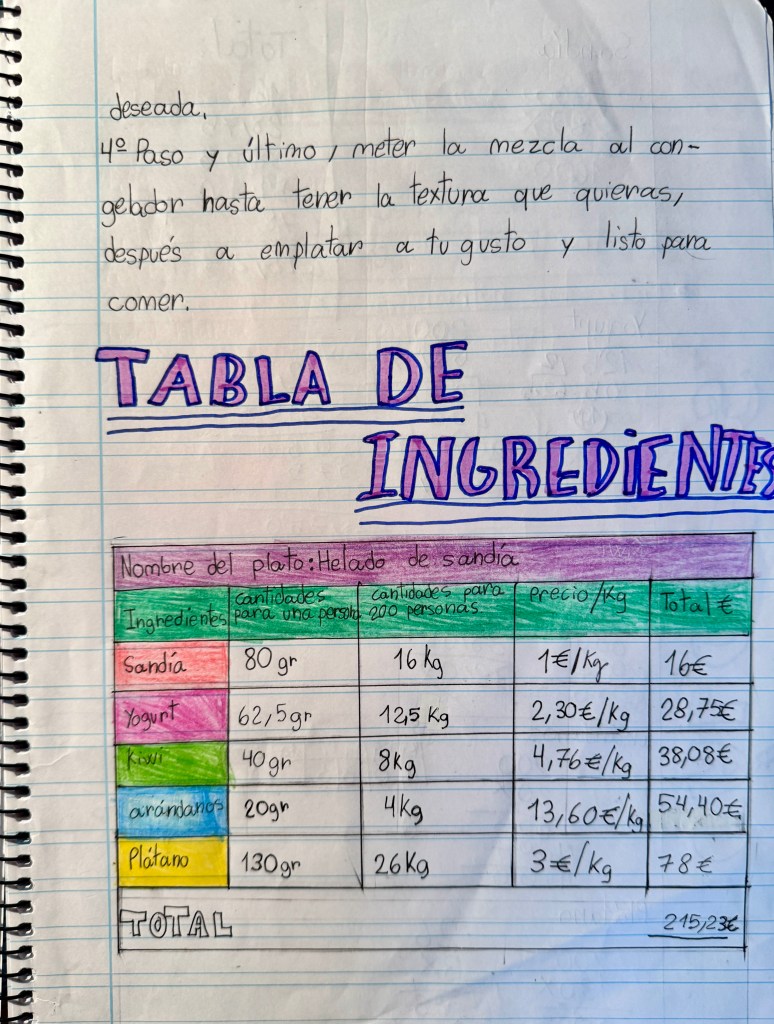 deseada.
4º Paso y último, meter la mezcla al con-
gelador hasta tener la textura que quieras,
después a emplatar a tu gusto y listo para
comer.
TABLA DE
INGREDIENTES
Nombre del plato: Helado de sandía
Ingredientes | cantidades para una persona | cantidades para 200 personas | precio/Kg | Total €
Sandía | 80 gr | 16 Kg | 1€/Kg | 16€
Yogurt | 62,5gr | 12,5 Kg | 2,30€/kg | 28,75€
Kiwi | 40gr | 8Kg | 4,76€/kg | 38,08€
arándanos | 20gr | 4Kg | 13,60€/kg | 54,40€
Plátano | 130gr | 26Kg | 3€/Kg | 78€
TOTAL 215,23€